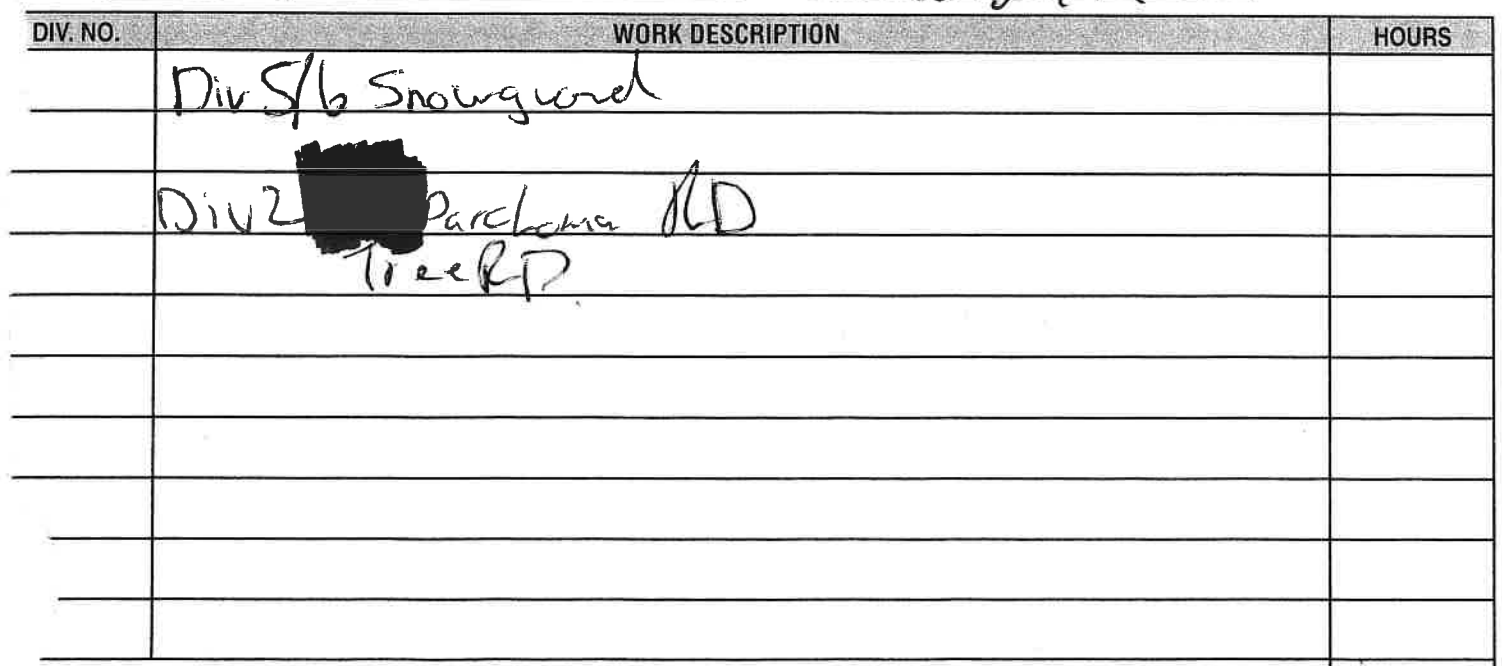 DIV. NO. WORK DESCRIPTION HOURS
Div 5/6 Snowguard
Div 2 Parchoma RD
Tree RD